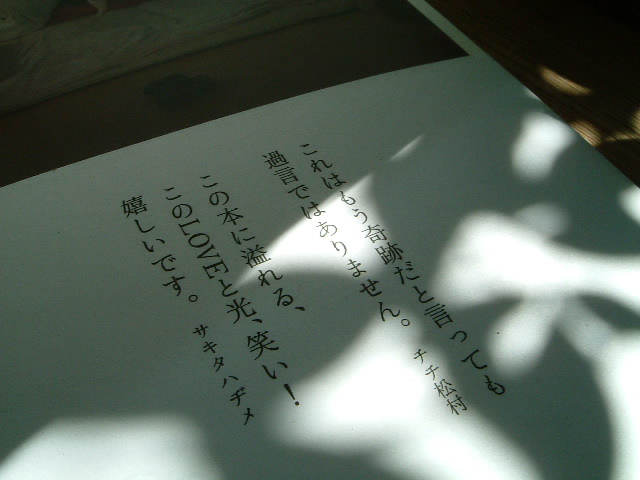 これはもう奇跡だと言っても
過言ではありません。 チチ松村
この本に溢れる、
このLOVEと光、笑い！
嬉しいです。 サキタハヂメ